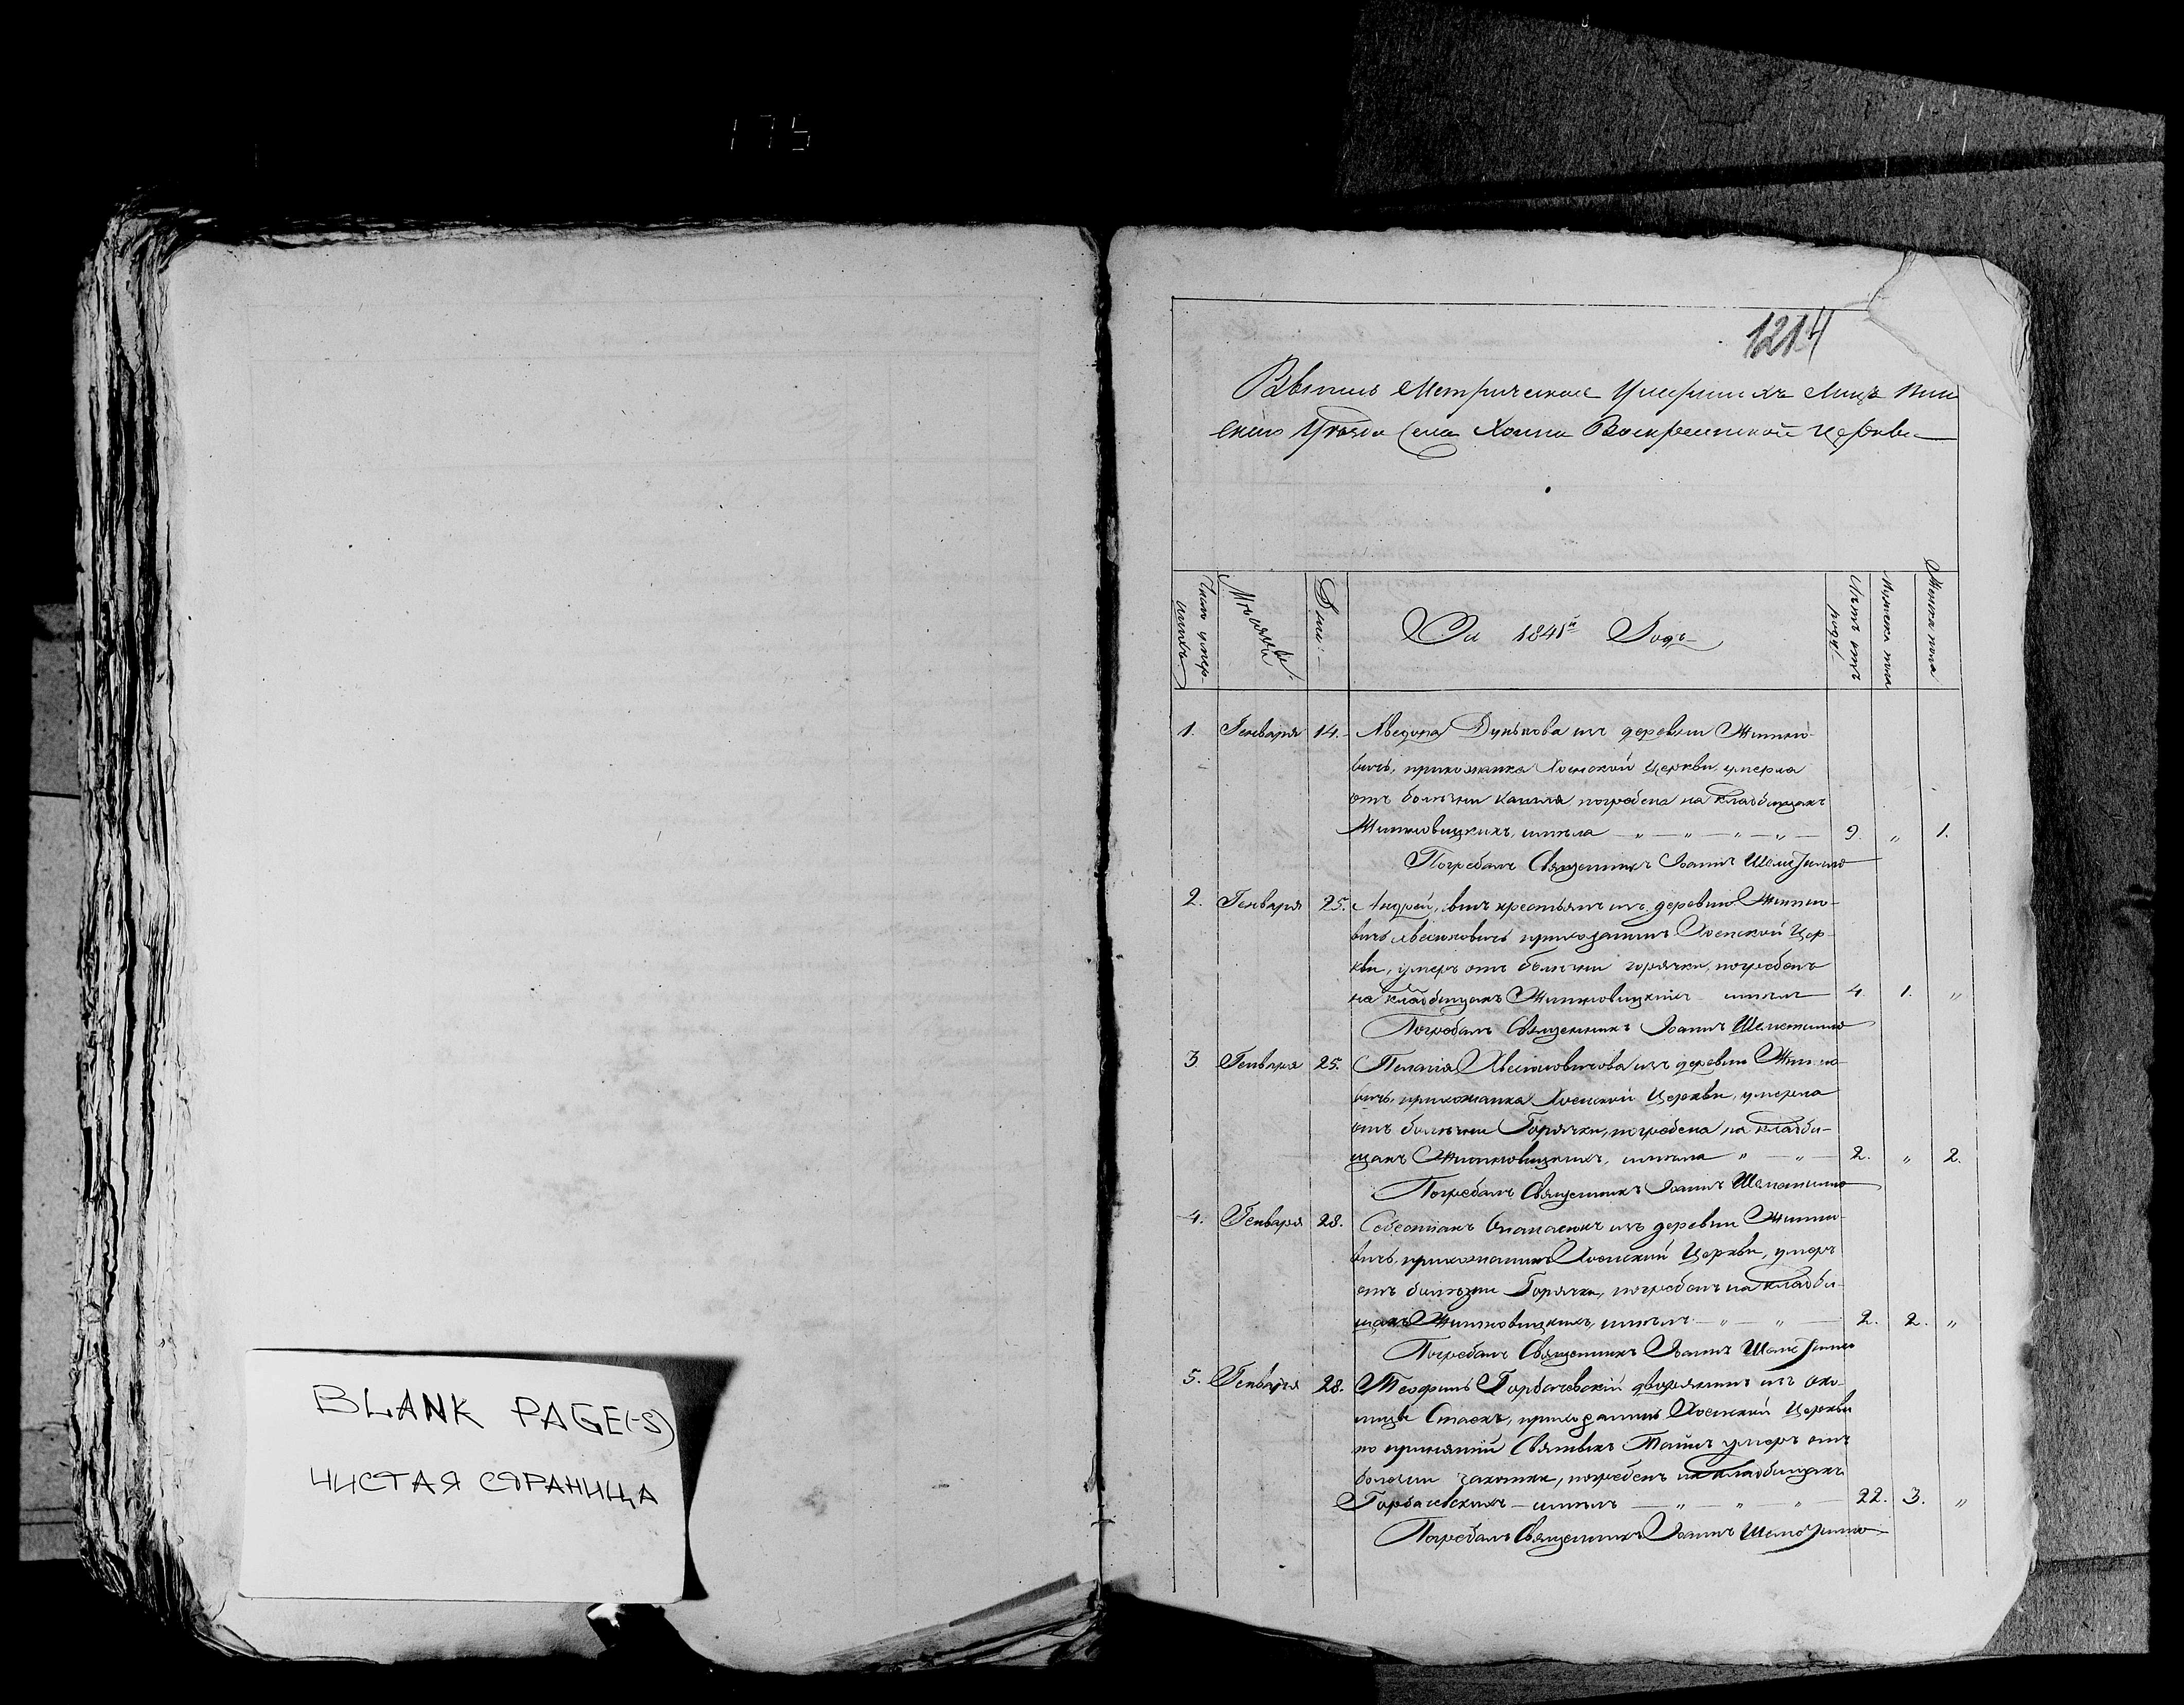 175
BLANK PAGE(-S)
ЧИСТАЯ СТРАНИЦА
1214
Выпись Метрическая Умершихъ Лицъ Пин
скаго Уѣзда Села Хойна Воскресенской Церкви
Число умер-
шихъ
Мѣсяцы
Дни
За 1841й Годъ
Лѣтъ отъ
роду
Мужеска пола
Женска пола
1. Генваря 14. Дунькова изъ деревни Жидко-
вичъ, прихожанка Хоенской Церкви, умерла
отъ болѣзни кашля, погребена на кладбищахъ
Жидковицкихъ, имѣла — „ — „ — „ — „ — 9. „ 1.
Погребалъ Священникъ Іоаннъ Шеметилло
2. Генваря 25. Андрей, крестьянъ изъ деревни Жидко-
вичъ прихожанинъ Хоенской Цер-
кви, умеръ отъ болѣзни горячки, погребенъ
на кладбищахъ Жидковицкихъ имѣлъ — 4. 1. „
Погребалъ Священникъ Іоаннъ Шеметилло
3. Генваря 25. Пелагія изъ деревни Жидко-
вичъ, прихожанка Хоенской Церкви, умерла
отъ болѣзни Горячки, погребена на кладби-
щахъ Жидковицкихъ, имѣла „ — „ — 2. „ 2.
Погребалъ Священникъ Іоаннъ Шеметилло
4. Генваря 28. изъ деревни Жидко-
вичъ, прихожанинъ Хоенской Церкви, умеръ
отъ болѣзни Горячки, погребенъ на кладби-
щахъ Жидковицкихъ, имѣлъ — „ — „ — 2. 2. „
Погребалъ Священникъ Іоаннъ Шеметилло
5. Генваря 28. Теофиль Горбачевскій дворянинъ изъ око-
лицы прихожанинъ Хоенской Церкви
по принятіи Святыхъ Тайнъ умеръ отъ
болѣзни чахотки, погребенъ на кладбищахъ
Горбачевскихъ — имѣлъ — „ — „ — „ — 22. 3. „
Погребалъ Священникъ Іоаннъ Шеметилло